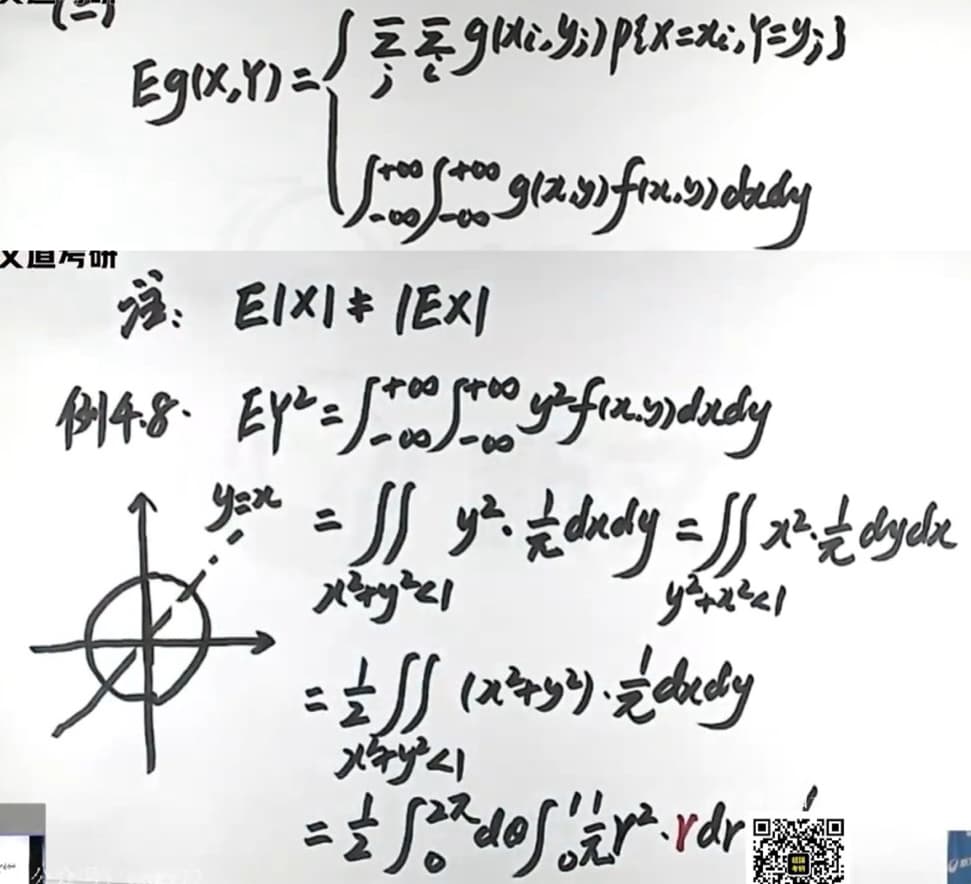 (二)
Eg(X,Y) = { ∑_j ∑_i g(x_i, y_j) P{X=x_i, Y=y_j}
∫_{-∞}^{+∞} ∫_{-∞}^{+∞} g(x,y) f(x,y) dxdy
文道考研
注: E|X| ≠ |EX|
例4.8. EY² = ∫_{-∞}^{+∞} ∫_{-∞}^{+∞} y² f(x,y) dxdy
y=x
= ∬_{x²+y²<1} y² · 1/π dxdy = ∬_{y²+x²<1} x² · 1/π dydx
= 1/2 ∬_{x²+y²<1} (x²+y²) · 1/π dxdy
= 1/2 ∫_0^{2π} dθ ∫_0^1 1/π r² · r dr